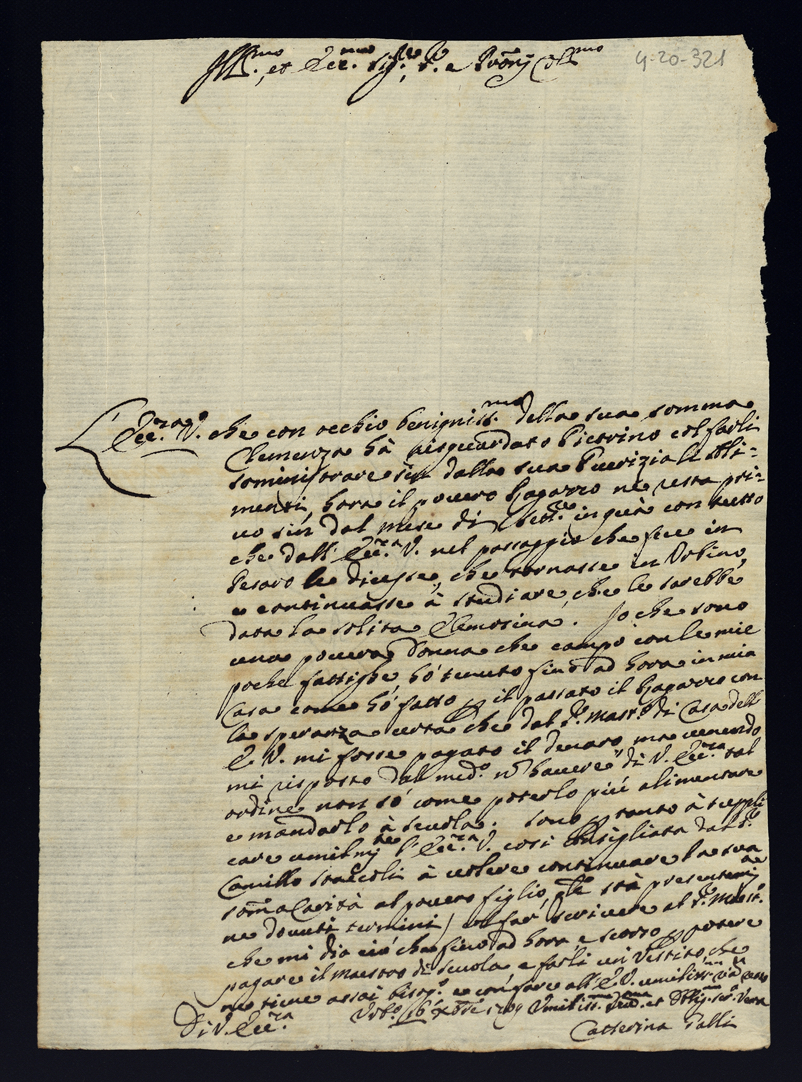 Ill.mo, et Ecc.mo Sig.re, S.r e P̄rōn Col.mo
4-20-321
Ecc.za V. che con occhio benigniss.mo della sua somma
Clemenza hà risguardato Pietrino col farli
somministrare sin dalla sua Puerizia li Ali=
menti, hora il povero Ragazzo ne resta pri-
vo sin dal mese di in quà con tutto
che dall' Ecc.za V. nel passaggio che fece in
Pesaro le dicesse, che tornasse in Urbino,
e continuasse à studiare che le sarebbe
data la solita Elemosina. Io che sono
una povera donna che campo con le mie
poche fattighe hò tenuto fino ad hora in mia
Casa come hò fatto p il passato il Ragazzo con
la speranza certa che dal S.r Mast.o di Casa dell'
E. V. mi fosse pagato il denaro, ma venendo
mi risposto dal med.o nō havere di V. Ecc.za tal
ordine, non sò come poterlo più alimentare
e mandarlo à scuola. Sono p tanto à suppli
care umilm.te l'Ecc.za V. così Consigliata dal S.r
Camillo Staccoli à volere continuare la sua
som̄a Carità al povero figlio, stà presentem.te
ne dovuti termini, con far scrivere al S.r Mast.o
che mi dia ciò che fino ad hora è scorso p potere
pagare il maestro di scuola e farli un Vestito che
ne tiene assai bisog.o e con fare all'E. V. umiliss.ma
Di V. Ecc.za Urb.o 16 Xbre 1709 Umiliss.ma Dev.ma et Obblig.ma Ser.a Vera
Catterina Galli